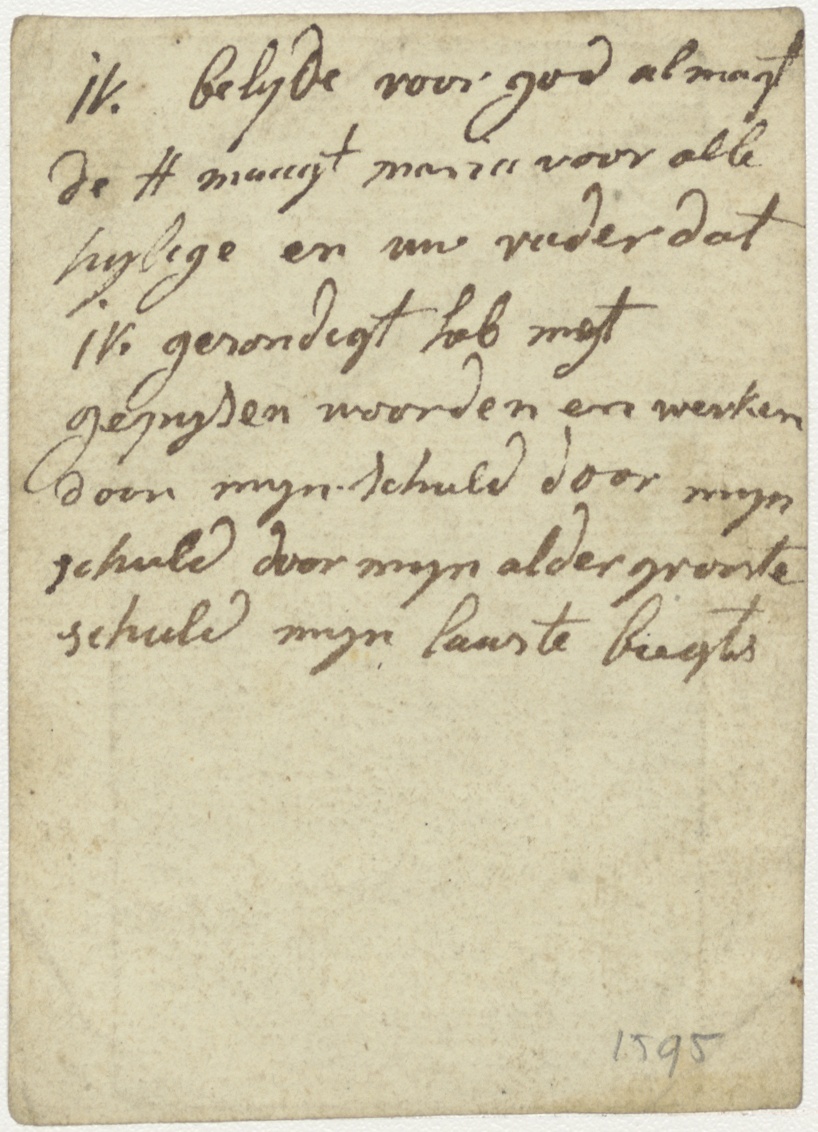 ik. belyde voor god almagt
de H maagt maria voor alle
hylige en uw vader dat
ik. gezondigt heb met
gepysen woorden en werken
door myn schuld door myn
schuld door myn alder grooste
schuld myn laaste biegt is
1595